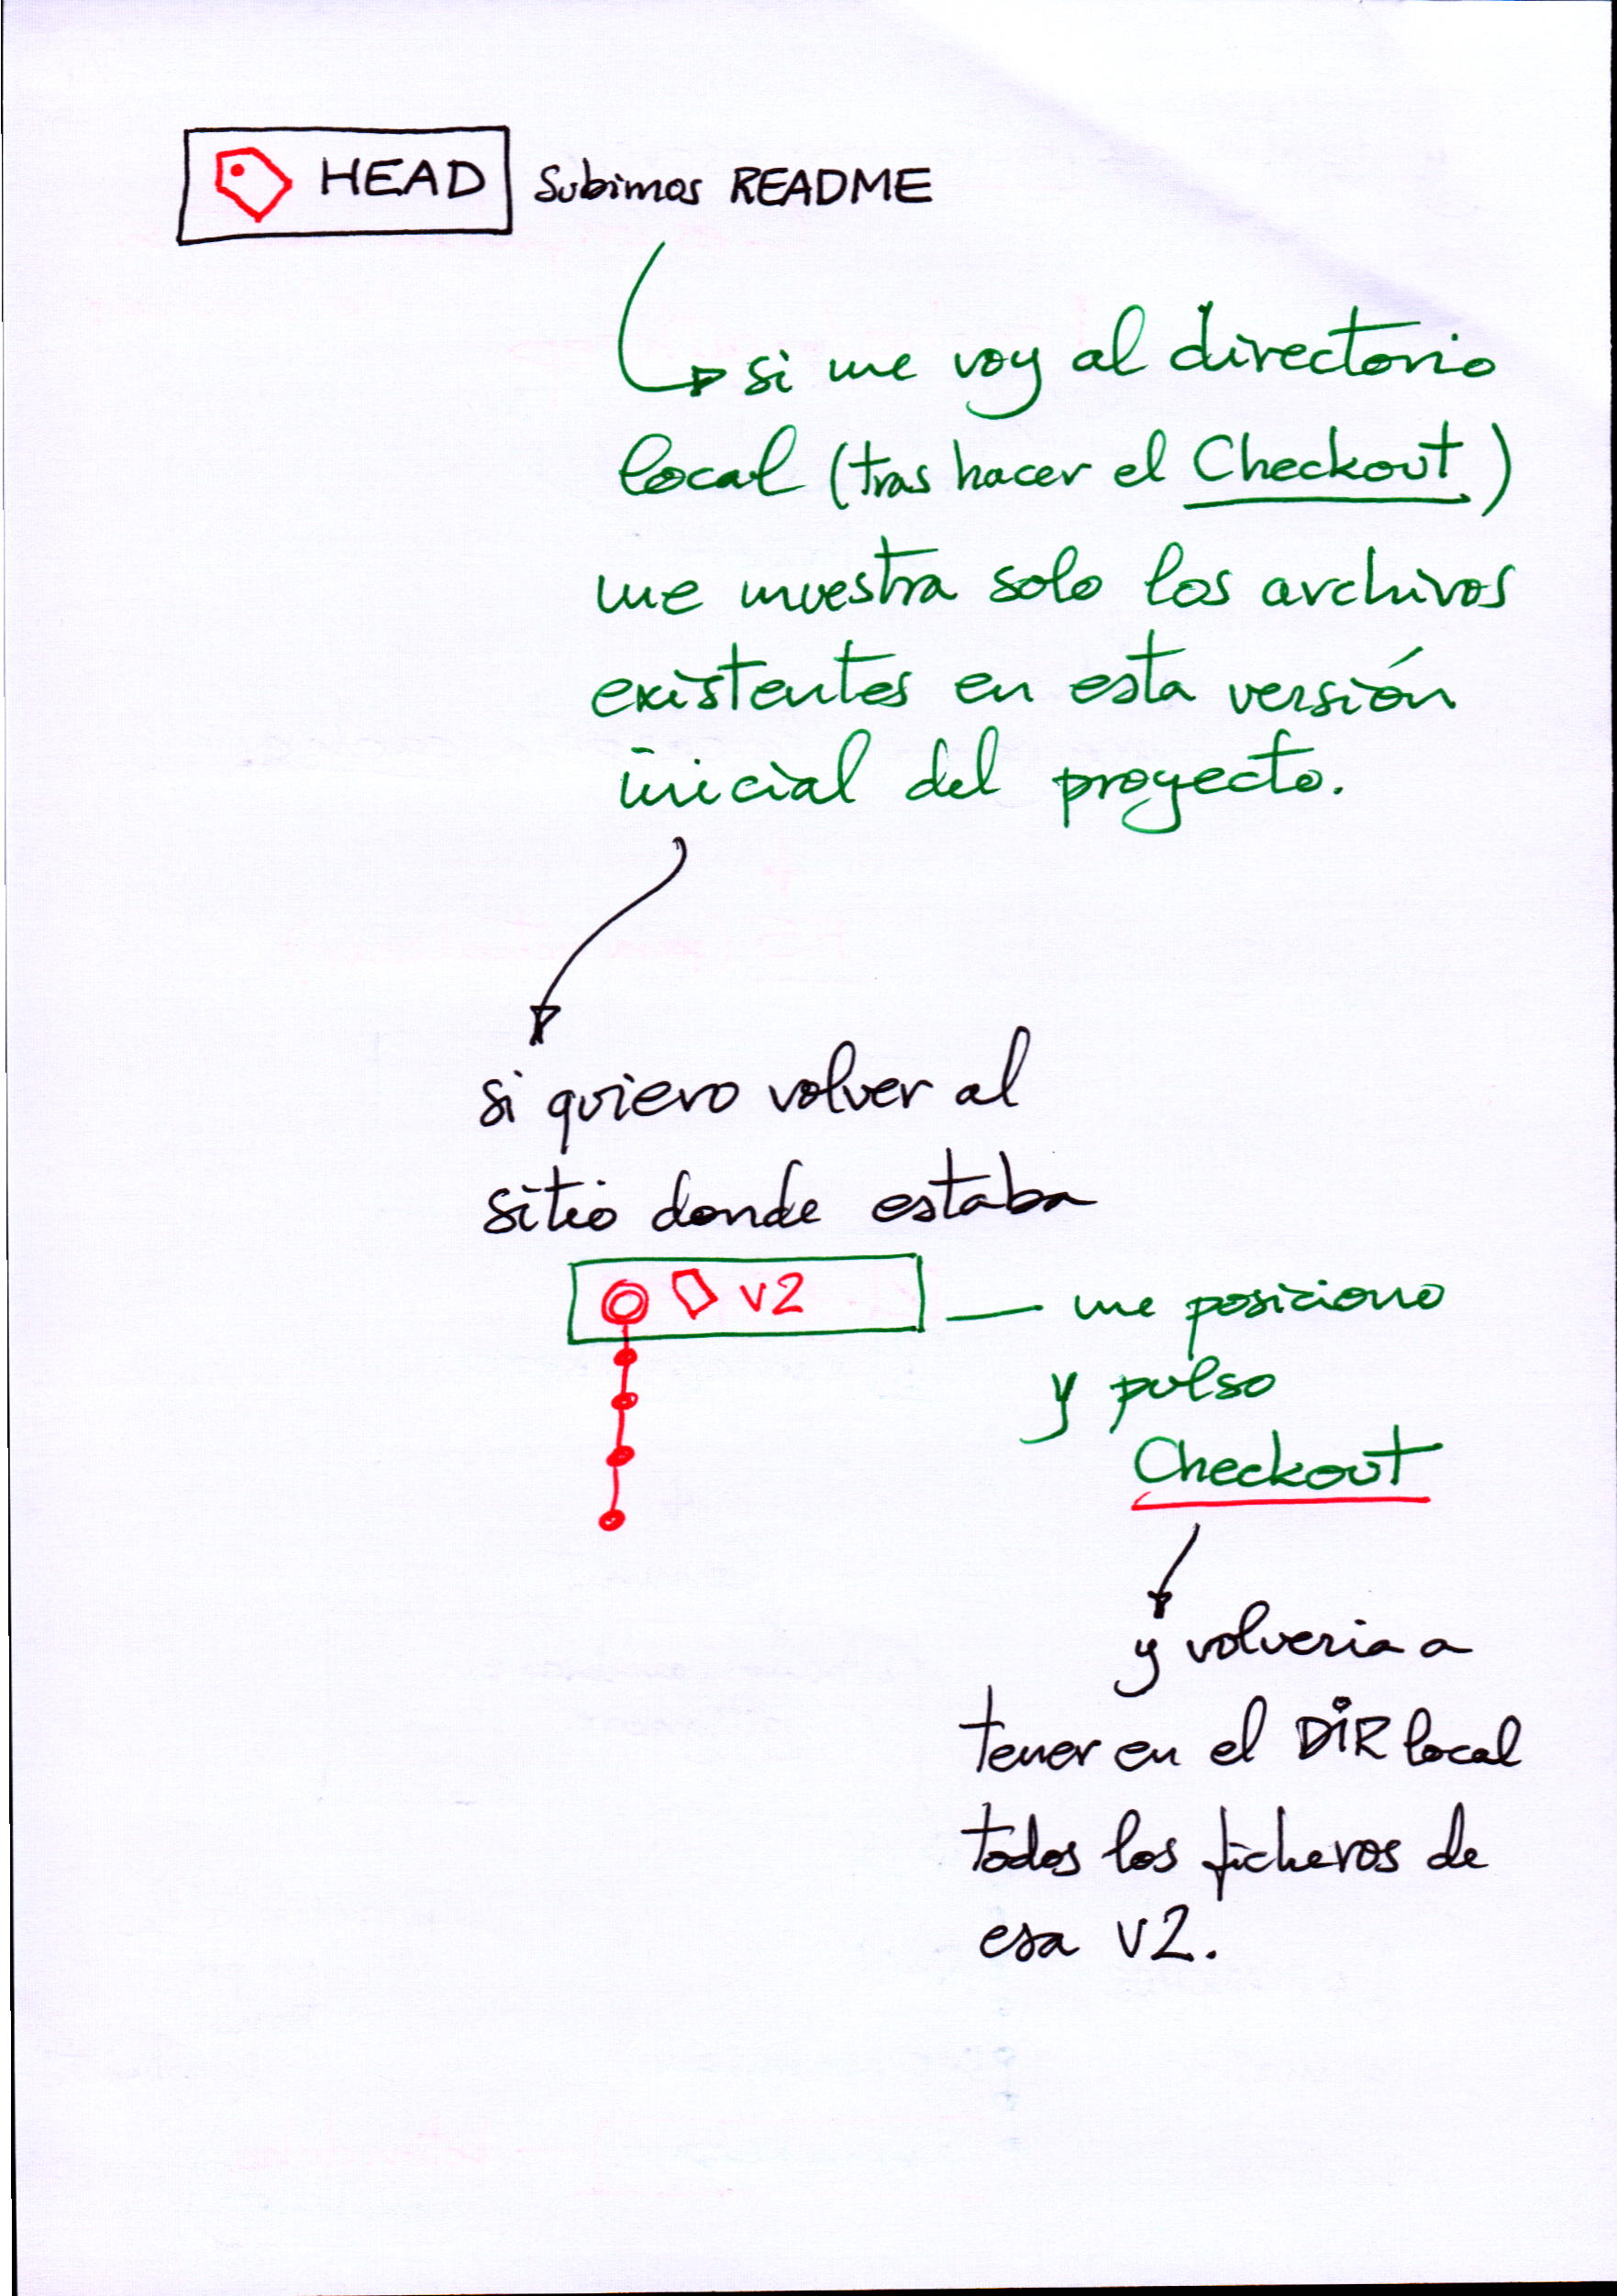 HEAD Subimos README
si me voy al directorio
local (tras hacer el Checkout)
me muestra solo los archivos
existentes en esta versión
inicial del proyecto.
si quiero volver al
sitio donde estaba
v2 — me posiciono
y pulso
Checkout
y volveria a
tener en el DiR local
todos los ficheros de
esa v2.